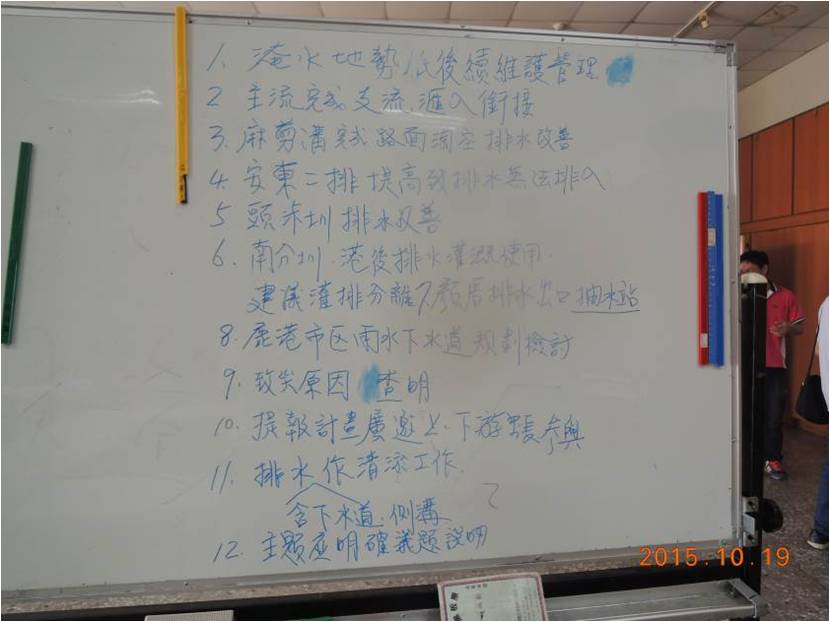 1. 淹水地勢低後續維護管理
2 主流完成支流.滙入銜接
3. 麻剪溝完成路面淘空排水改善
4. 安東二排堤高致排水無法排入
5 頭末圳排水改善
6. 南分圳.港後排水灌溉使用.
建議灌排分離 7.顏厝排水出口抽水站
8. 鹿港市区雨水下水道規劃檢討
9. 致災原因 查明
10. 提報計畫廣邀上.下游里長參與
11. 排水作清淤工作.
含下水道.側溝
12. 主題應明確議題說明
2015.10.19